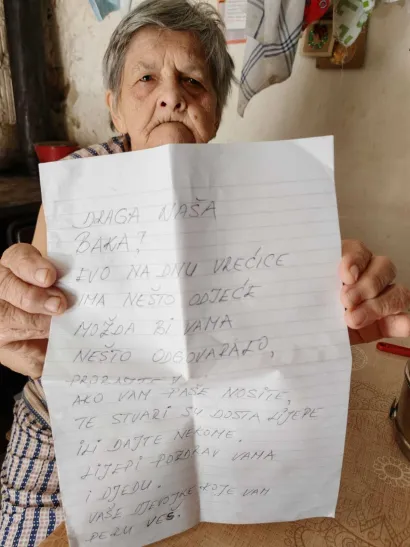 DRAGA NAŠA
BAKA!
EVO NA DNU VREĆICE
IMA NEŠTO ODJEĆE
MOŽDA BI VAMA
NEŠTO ODGOVARALO,
PROBAJTE
AKO VAM PAŠE NOSITE,
TE STVARI SU DOSTA LIJEPE
ILI DAJTE NEKOME.
LIJEPI POZDRAV VAMA
I DJEDU.
VAŠE DJEVOJKE KOJE VAM
PERU VEŠ.